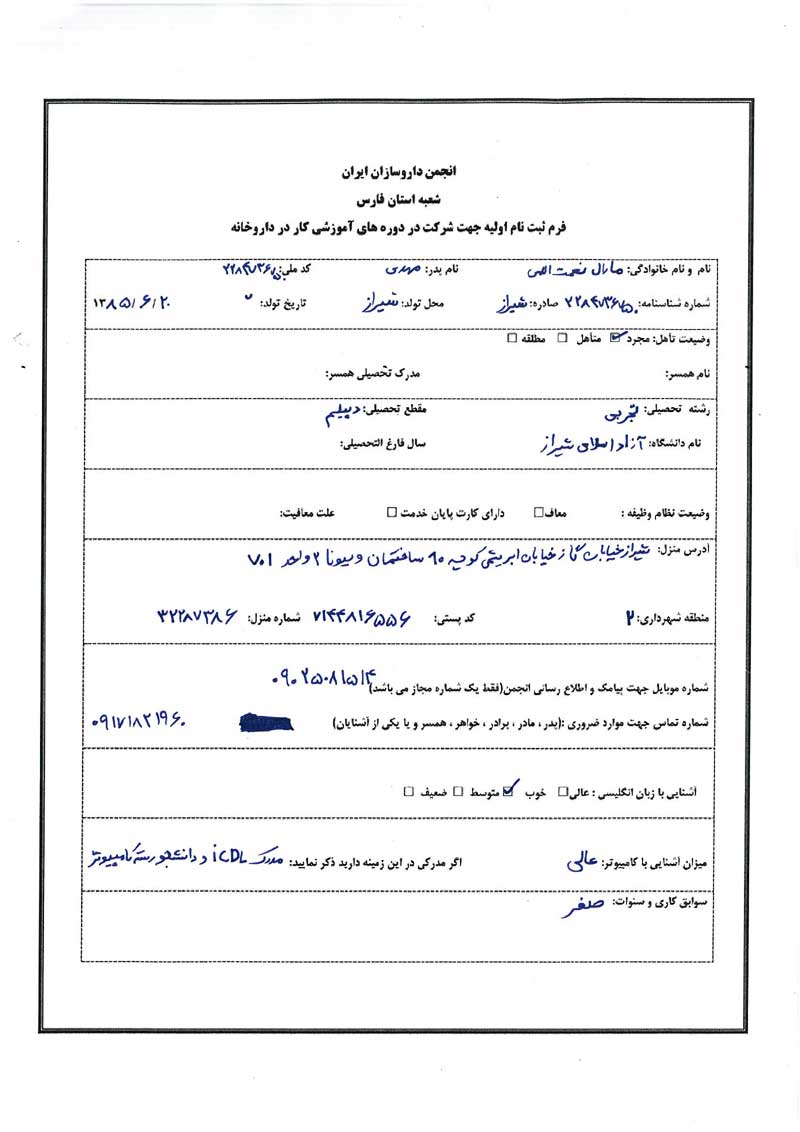 انجمن داروسازان ایران
شعبه استان فارس
فرم ثبت نام اولیه جهت شرکت در دوره های آموزشی کار در داروخانه
نام و نام خانوادگی: مارال نعمت الهی نام پدر: مهدی کد ملی:
شماره شناسنامه: صادره: شیراز محل تولد: شیراز تاریخ تولد: ۱۳۸۵/۶/۲۰
وضعیت تأهل: مجرد ☑ متأهل ☐ مطلقه ☐
نام همسر: مدرک تحصیلی همسر:
رشته تحصیلی: تجربی مقطع تحصیلی: دیپلم
نام دانشگاه: آزاد اسلامی شیراز سال فارغ التحصیلی:
وضعیت نظام وظیفه : معاف☐ دارای کارت پایان خدمت ☐ علت معافیت:
آدرس منزل: شیراز خیابان خیابان ابریشمی کوچه ۱۰ ساختمان ویونا ۲ واحد ۷۰۱
منطقه شهرداری: ۲ کد پستی: ۷۱۴۴۸۱۶۵۵۶ شماره منزل: ۳۲۲۸۷۳۸۶
شماره موبایل جهت پیامک و اطلاع رسانی انجمن(فقط یک شماره مجاز می باشد) ۰۹۰۲۵۰۸۱۵۱۴
شماره تماس جهت موارد ضروری :(پدر ، مادر ، برادر ، خواهر ، همسر و یا یکی از آشنایان) ۰۹۱۷۱۸۲۱۹۶۰
آشنایی با زبان انگلیسی : عالی☐ خوب ☑ متوسط ☐ ضعیف ☐
میزان آشنایی با کامپیوتر: عالی اگر مدرکی در این زمینه دارید ذکر نمایید: مدرک ICDL و دانشجو رشته کامپیوتر
سوابق کاری و سنوات: صفر